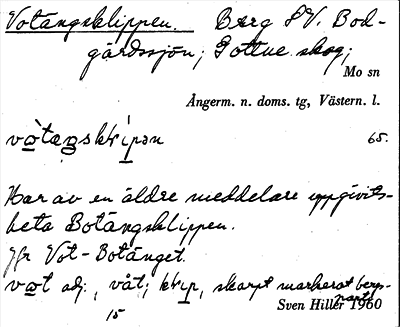 Votängsklippen. Berg SV. Bod-
gårdssjön; Gottne skog;
Mo sn
Ångerm. n. doms. tg, Västern. l.
65.
Har av en äldre meddelare uppgivits
heta Botängsklippen.
Jfr Vot-Botänget.
adj., våt; skarpt markerat bergs-
parti
15
Sven Hiller 1960